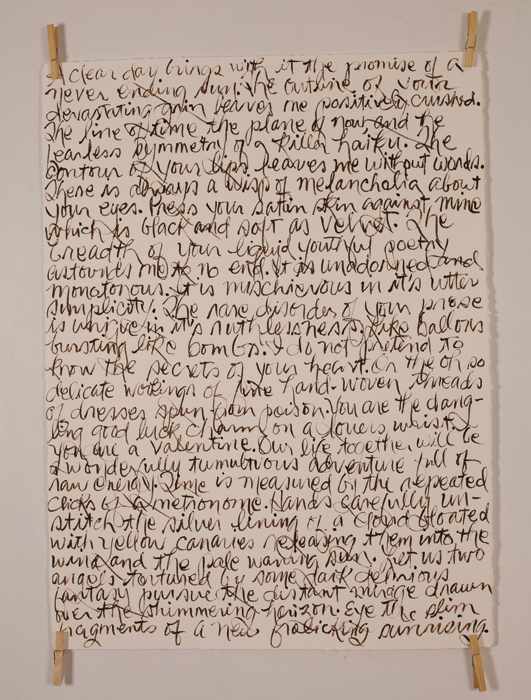 A clear day brings with it the promise of a
never ending sun. The outline of your
devastating grin leaves me positively crushed.
The line of time the plane of now and the
fearless symmetry of a killer haiku. The
contour of your lips leaves me without words.
There is always a wisp of melancholia about
your eyes. Press your satin skin against mine
which is black and soft as velvet. The
breadth of your liquid youthful poetry
astounds me to no end. It is unadorned and
monotonous. It is mischievous in it's utter
simplicity. The rare disorder of your prose
is unique in it's ruthlessness. Like ballons
bursting like bombs. I do not pretend to
know the secrets of your heart. Or the oh so
delicate workings of fine hand-woven threads
of dresses spun from poison. You are the dang-
ling good luck charm on a lovers wrist.
You are a valentine. Our life together will be
a wonderfully tumultuous adventure full of
raw energy. Time is measured by the repeated
clicks of a metronome. Hands carefully un-
stitch the silver lining of a cloud bloated
with yellow canaries releasing them into the
wind and the pale waning sun. Let us two
angels tortured by some dark delirious
fantasy pursue the distant mirage drawn
over the shimmering horizon. Eye the slim
fragments of a new frolicking sunrising.